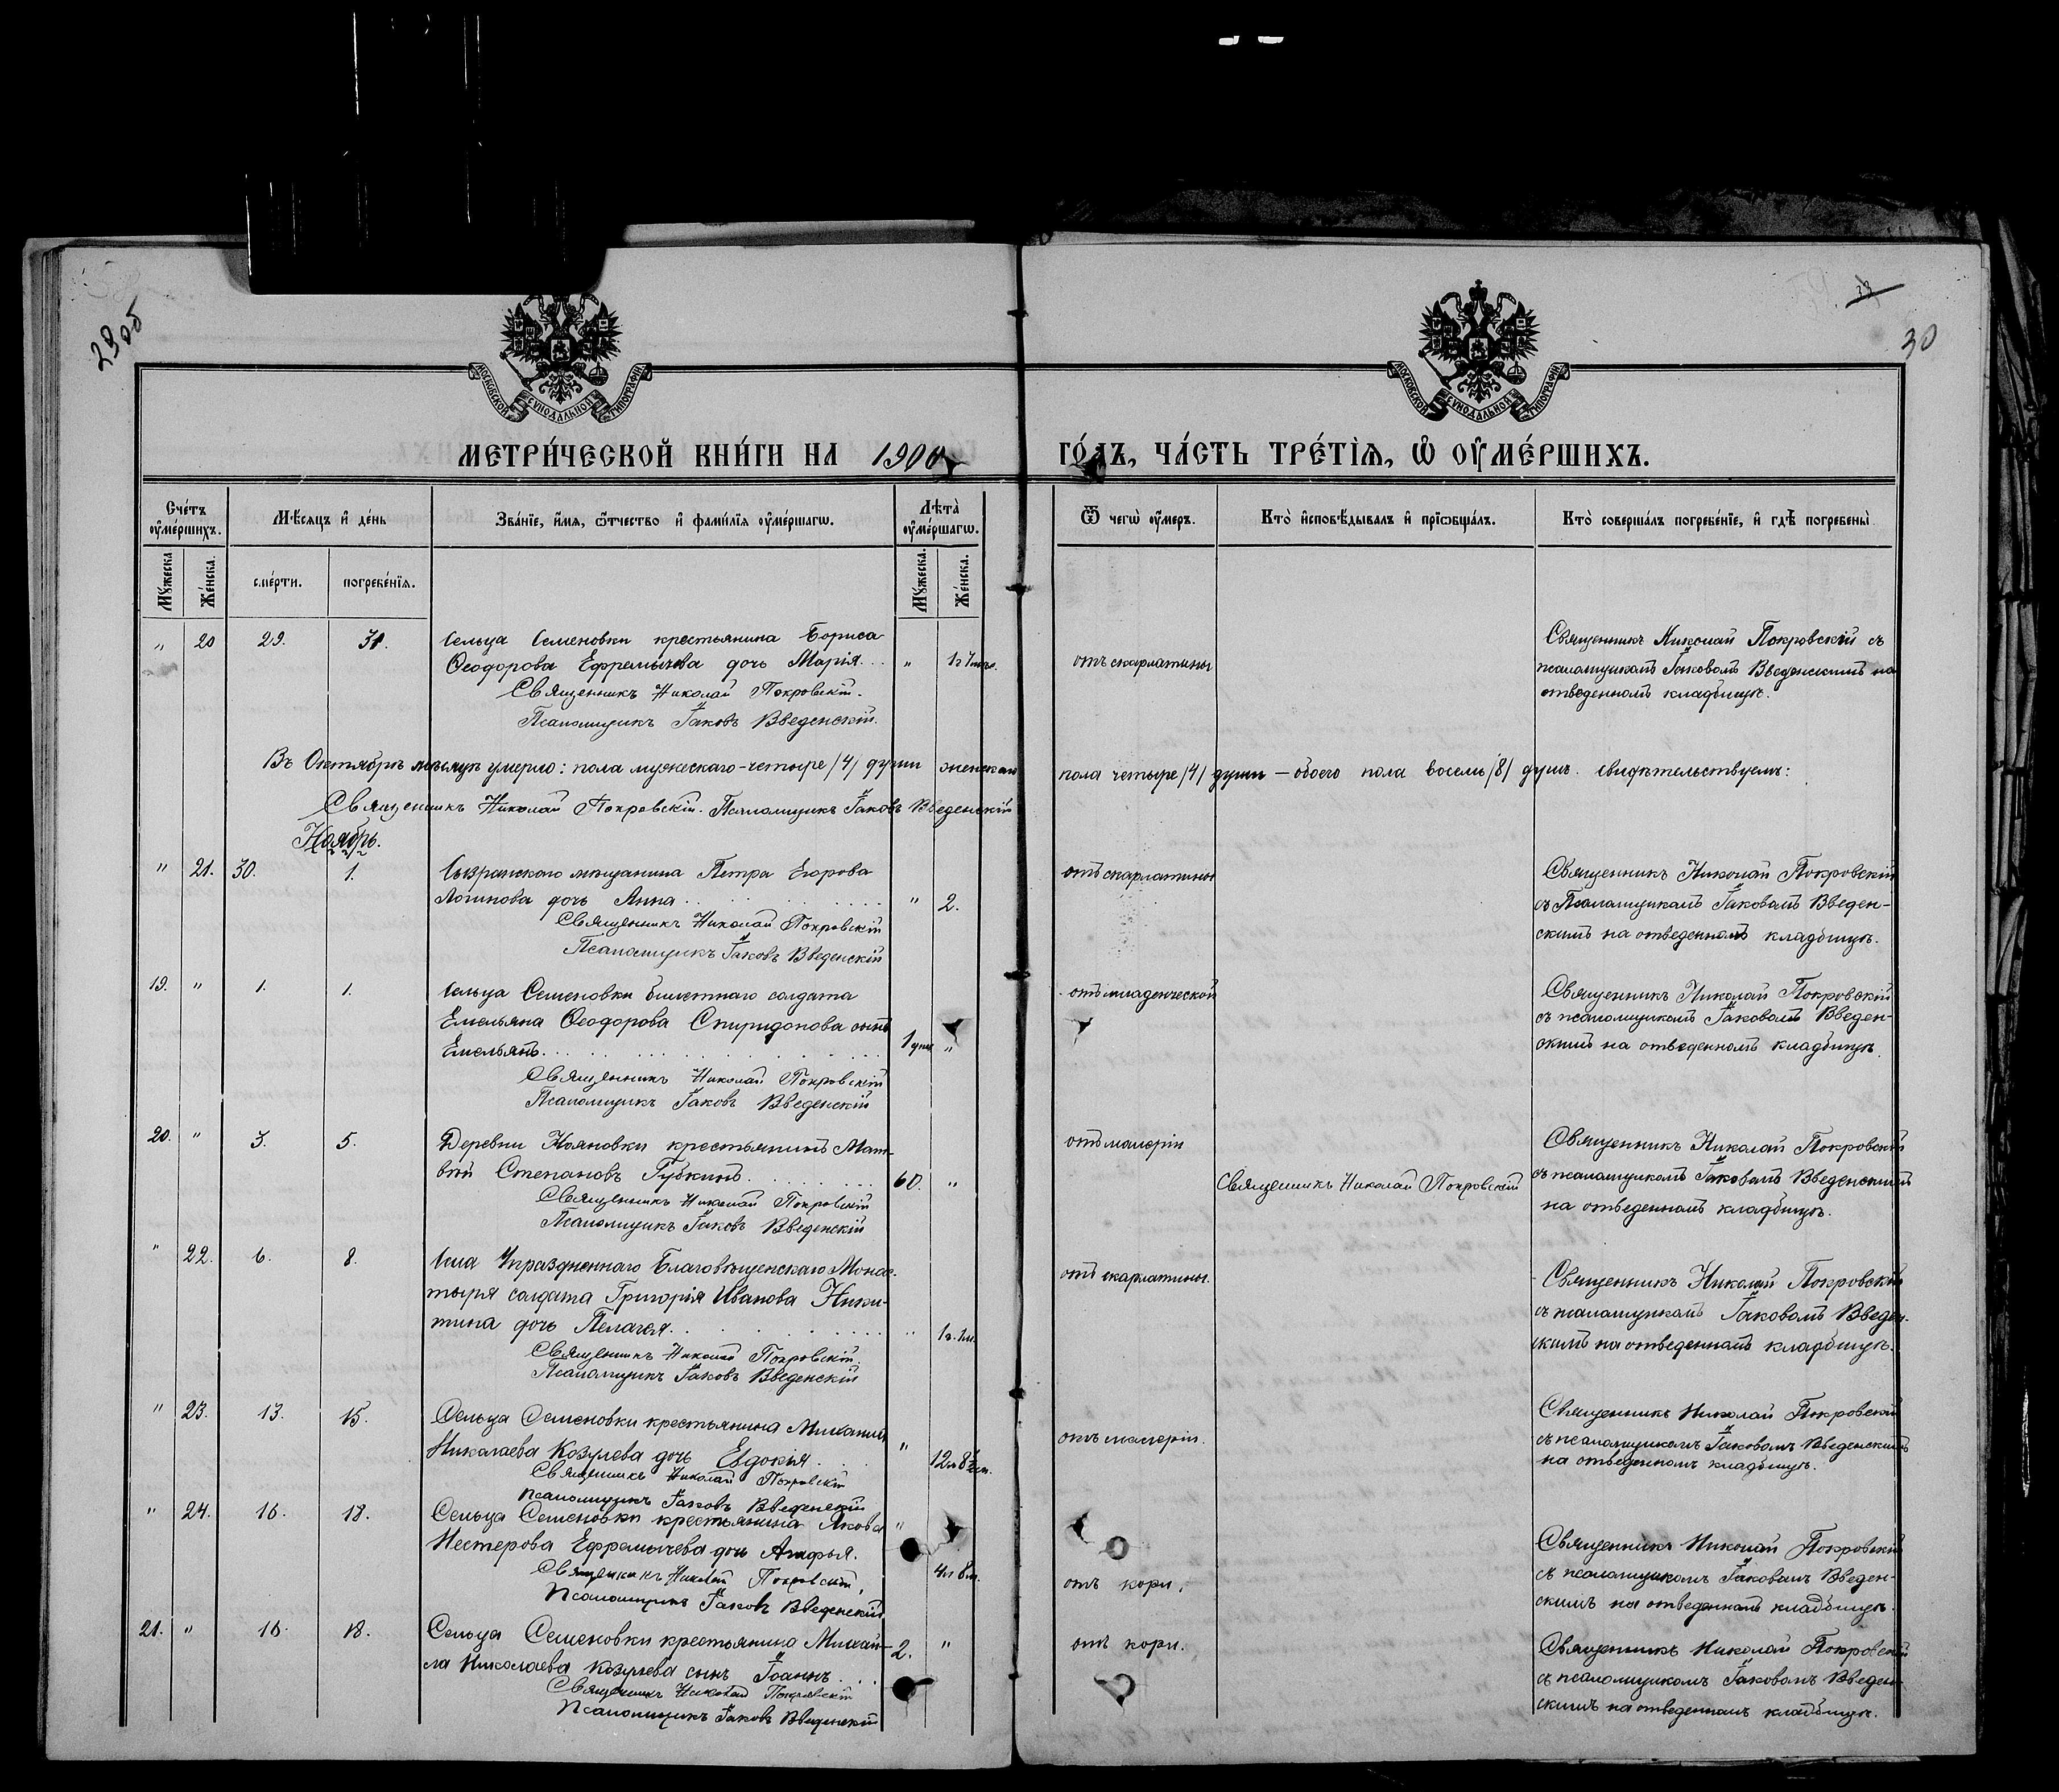 29об
30
МОСКОВСКОЙ СѴНОДАЛЬНОЙ ТИПОГРАФІИ
МОСКОВСКОЙ СѴНОДАЛЬНОЙ ТИПОГРАФІИ
МЕТРИ́ЧЕСКОЙ КНИ́ГИ НА 1900 ГО́ДЪ, ЧА́СТЬ ТРЕ́ТІЯ, Ѡ ОУ҆МЕ́РШИХЪ.
Сче́тъ оу҆ме́ршихъ.
Мѣ́сяцъ и҆ де́нь
Зва́нїе, и҆́мя, ѻ҆́тчество и҆ фами́лїя оу҆ме́ршагѡ.
Лѣ́та оу҆ме́ршагѡ.
Ѿ чегѡ̀ оу҆́меръ.
Кто̀ и҆сповѣ́дывалъ и҆ прїѡбща́лъ.
Кто̀ соверша́лъ погребе́нїе, и҆ гдѣ̀ погребены̀
Мꙋ́жеска
Же́нска.
сме́рти.
погребе́нїя.
Мꙋ́жеска.
Же́нска.
" 20 29. 31. Сельца Семеновки крестьянина Бориса
Ѳеодорова Ефремычева дочь Марія... "
отъ скарлатины
Священникъ Николай Покровскій.
Псаломщикъ Іаковъ Введенскій.
Священникъ Николай Покровскій съ
псаломщикомъ Іаковомъ Введенскимъ на
отведенномъ кладбищѣ.
Въ Октябрѣ мѣсяцѣ умерло: пола мужескаго - четыре /4/ души женскаго пола четыре /4/ души — обоего пола восемь /8/ душъ. свидѣтельствуемъ:
Священникъ Николай Покровскій. Псаломщикъ Іаковъ Введенскій
Ноябрь.
" 21. 30. 1. Сызранскаго мѣщанина Петра Егорова
Логинова дочь Анна " 2.
отъ скарлатины
Священникъ Николай Покровскій
Псаломщикъ Іаковъ Введенскій
Священникъ Николай Покровскій
съ Псаломщикомъ Іаковомъ Введен-
скимъ на отведенномъ кладбищѣ.
19. " 1. 1. Сельца Семеновки билетнаго солдата
Емельяна Ѳеодорова Спиридонова сынъ
Емельянъ "
отъ младенческой
Священникъ Николай Покровскій
Псаломщикъ Іаковъ Введенскій
Священникъ Николай Покровскій
съ псаломщикомъ Іаковомъ Введен-
скимъ на отведенномъ кладбищѣ.
20. " 3. 5. Деревни крестьянинъ Мат-
вѣй Степановъ Губкинъ 60. "
отъ малеріи
Священникъ Николай Покровскій
Священникъ Николай Покровскій
Псаломщикъ Іаковъ Введенскій
Священникъ Николай Покровскій
съ псаломщикомъ Іаковомъ Введенскимъ
на отведенномъ кладбищѣ.
" 22. 6. 8. Села Упраздненнаго Благовѣщенскаго Монас-
тыря солдата Григорія Иванова Ники-
тина дочь Пелагея "
отъ скарлатины.
Священникъ Николай Покровскій.
Псаломщикъ Іаковъ Введенскій
Священникъ Николай Покровскій
съ псаломщикомъ Іаковомъ Введен-
скимъ на отведенномъ кладбищѣ.
" 23. 13. 15. Сельца Семеновки крестьянина Михаила
Николаева Козулева дочь Евдокія "
отъ малеріи.
Священникъ Николай Покровскій
Псаломщикъ Іаковъ Введенскій
Священникъ Николай Покровскій
съ псаломщикомъ Іаковомъ Введенскимъ
на отведенномъ кладбищѣ.
" 24. 16. 18. Сельца Семеновки крестьянина Якова "
Нестерова Ефремычева дочь Агафья.
отъ кори.
Священникъ Николай Покровскій.
Псаломщикъ Іаковъ Введенскій
Священникъ Николай Покровскій
съ псаломщикомъ Іаковомъ Введен-
скимъ на отведенномъ кладбищѣ.
21. " 16. 18. Сельца Семеновки крестьянина Михаи-
ла Николаева Козулева сынъ Іоаннъ 2. "
отъ кори.
Священникъ Николай Покровскій
Псаломщикъ Іаковъ Введенскій
Священникъ Николай Покровскій
съ псаломщикомъ Іаковомъ Введен-
скимъ на отведенномъ кладбищѣ.